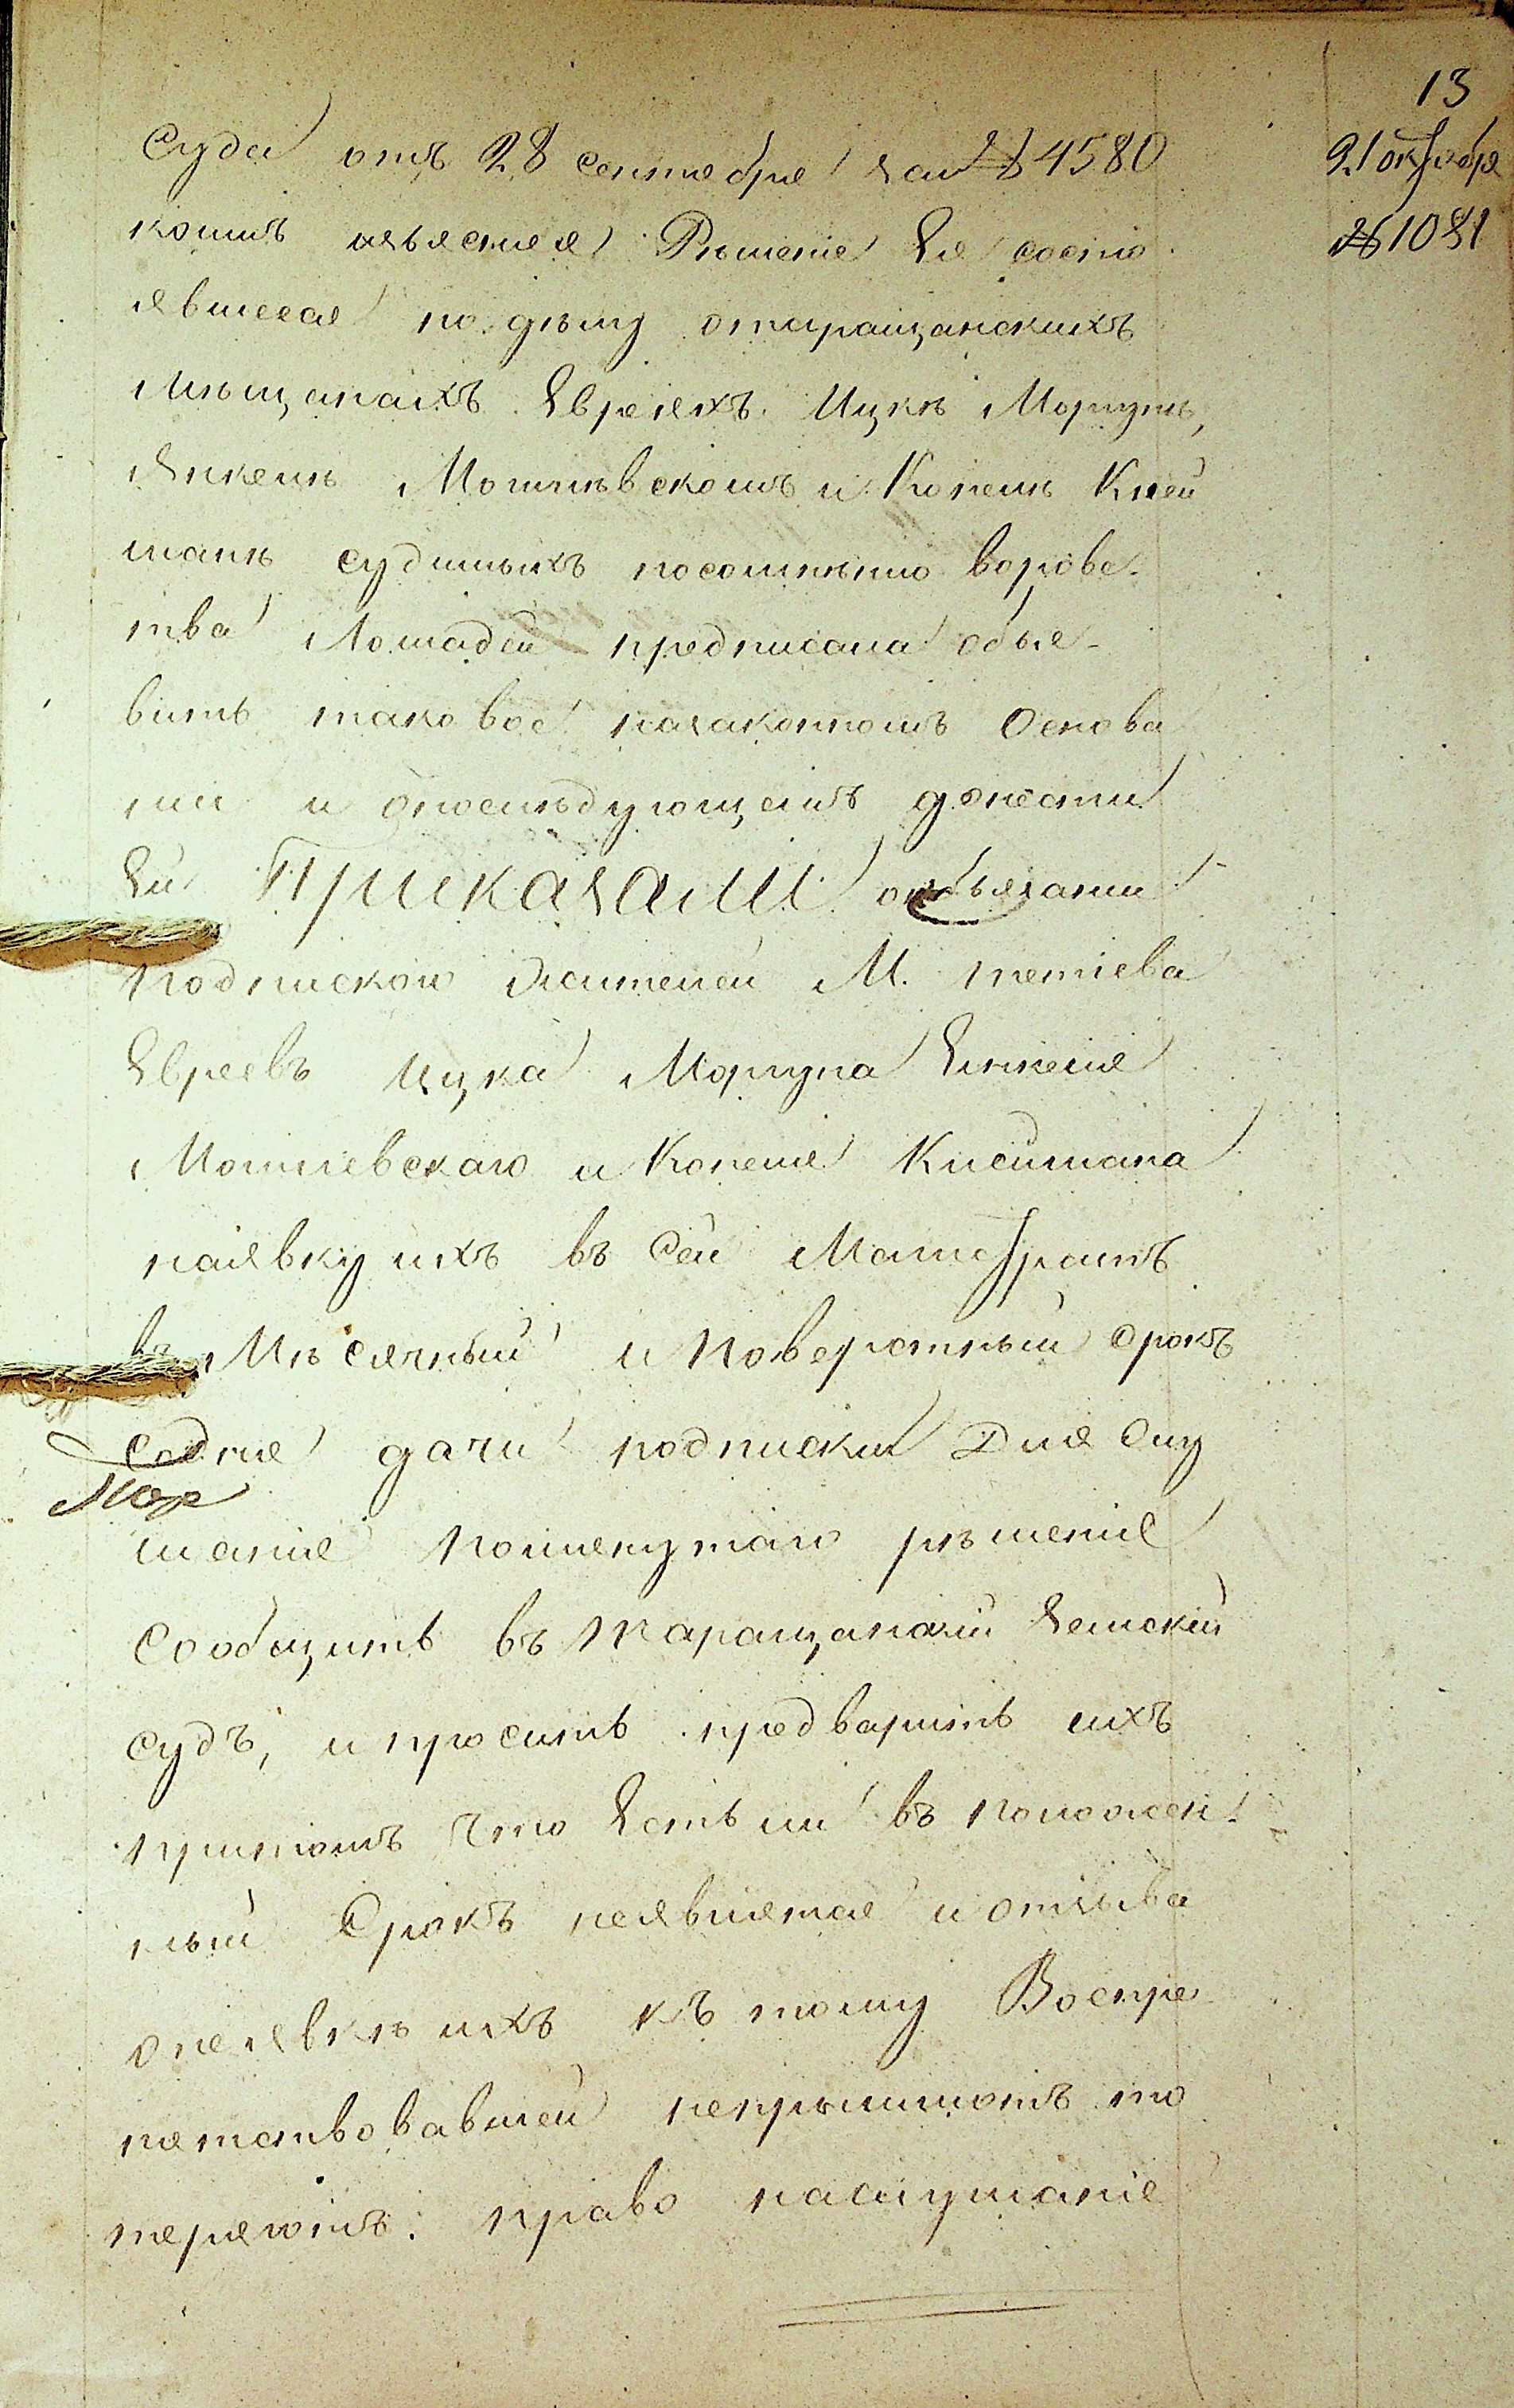 13
Суда отъ 28 сентебря за № 4580
21 октября
коимъ изъясняя Рѣшеніе Ея состо
№ 1081
явшееся по дѣлу отаращанскихъ
мѣщанахъ Евреяхъ Ицкѣ Моргунѣ,
Янкелѣ Мошнѣвскомъ и Копелѣ Клей
манѣ судимыхъ посомнѣнію воровс
тва Лошадей предписала объя-
вить таковое назаконномъ Основа
ніи и опослѣдующемъ донести
Ей Приказали обязании
подпискою жителей М. тетіева
Евреевъ Ицка Моргуна Енкеля
Мошневскаго и Копеля Клеймана
наявку ихъ въ Сей Магистратъ
въ Мѣсячный и Поверстный срокъ
содня дачи подписки Для Слу
шанія Помянутаго рѣшенія
Сообщить въ Таращанскій Земскій
судъ, и просить предварить ихъ
притомъ что Естьли въ положен
ный Срокъ неявлятся и отзыва
онеявкѣ ихъ къ тому Воспре
пятствовавшей непришлютъ то
теряютъ право наслушаніе